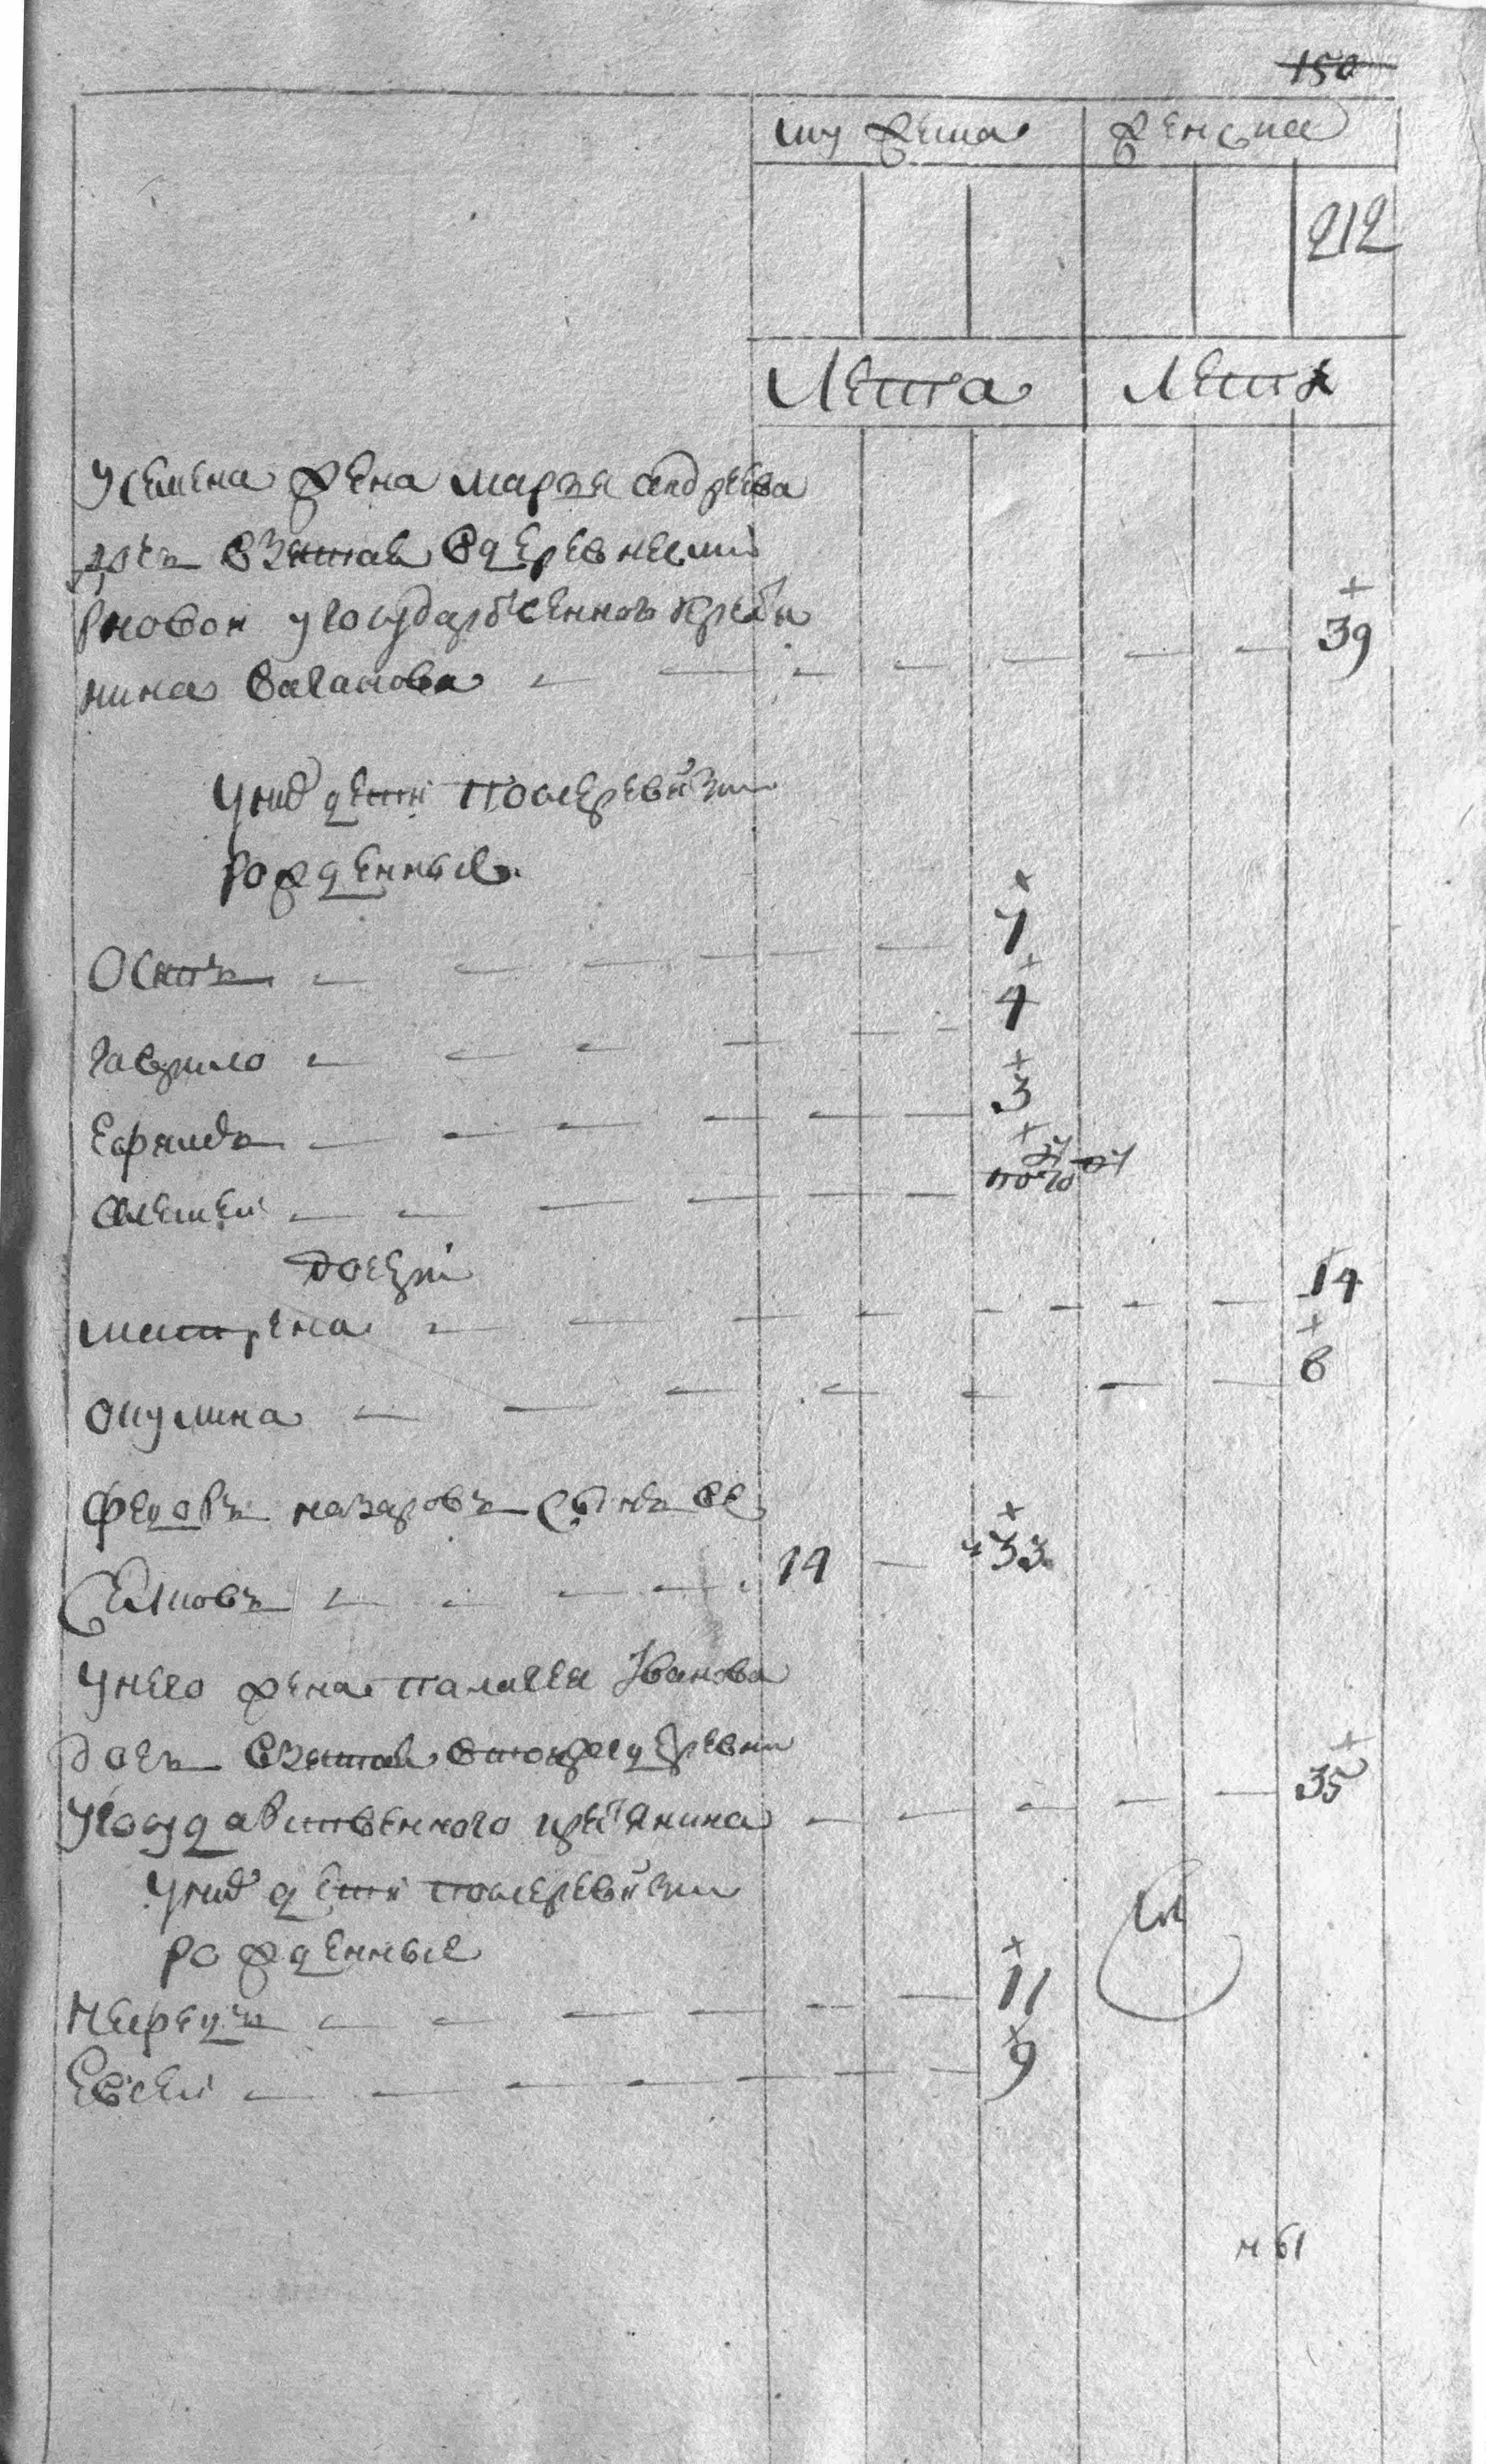 150
мужеска женска
212
Лета Лета
У семена жена марья андреева
дочь взятая в деревне
рновой у государственнова крестья
нина ваганова 39
У них дети после ревизи
рожденные
Осипъ 7
гаврило 4
Ефимъ 3
алексей полу году
дочери
матрена 14
окулина 6
федоръ назаровъ сынъ се
Селиновъ 14 33
У него жена палагея Иванова
дочь взятая в той же деревни
У государственного крестьянина 35
У них дети после ревизи
рожденные
неферъ 11
Евсей 9
м 61